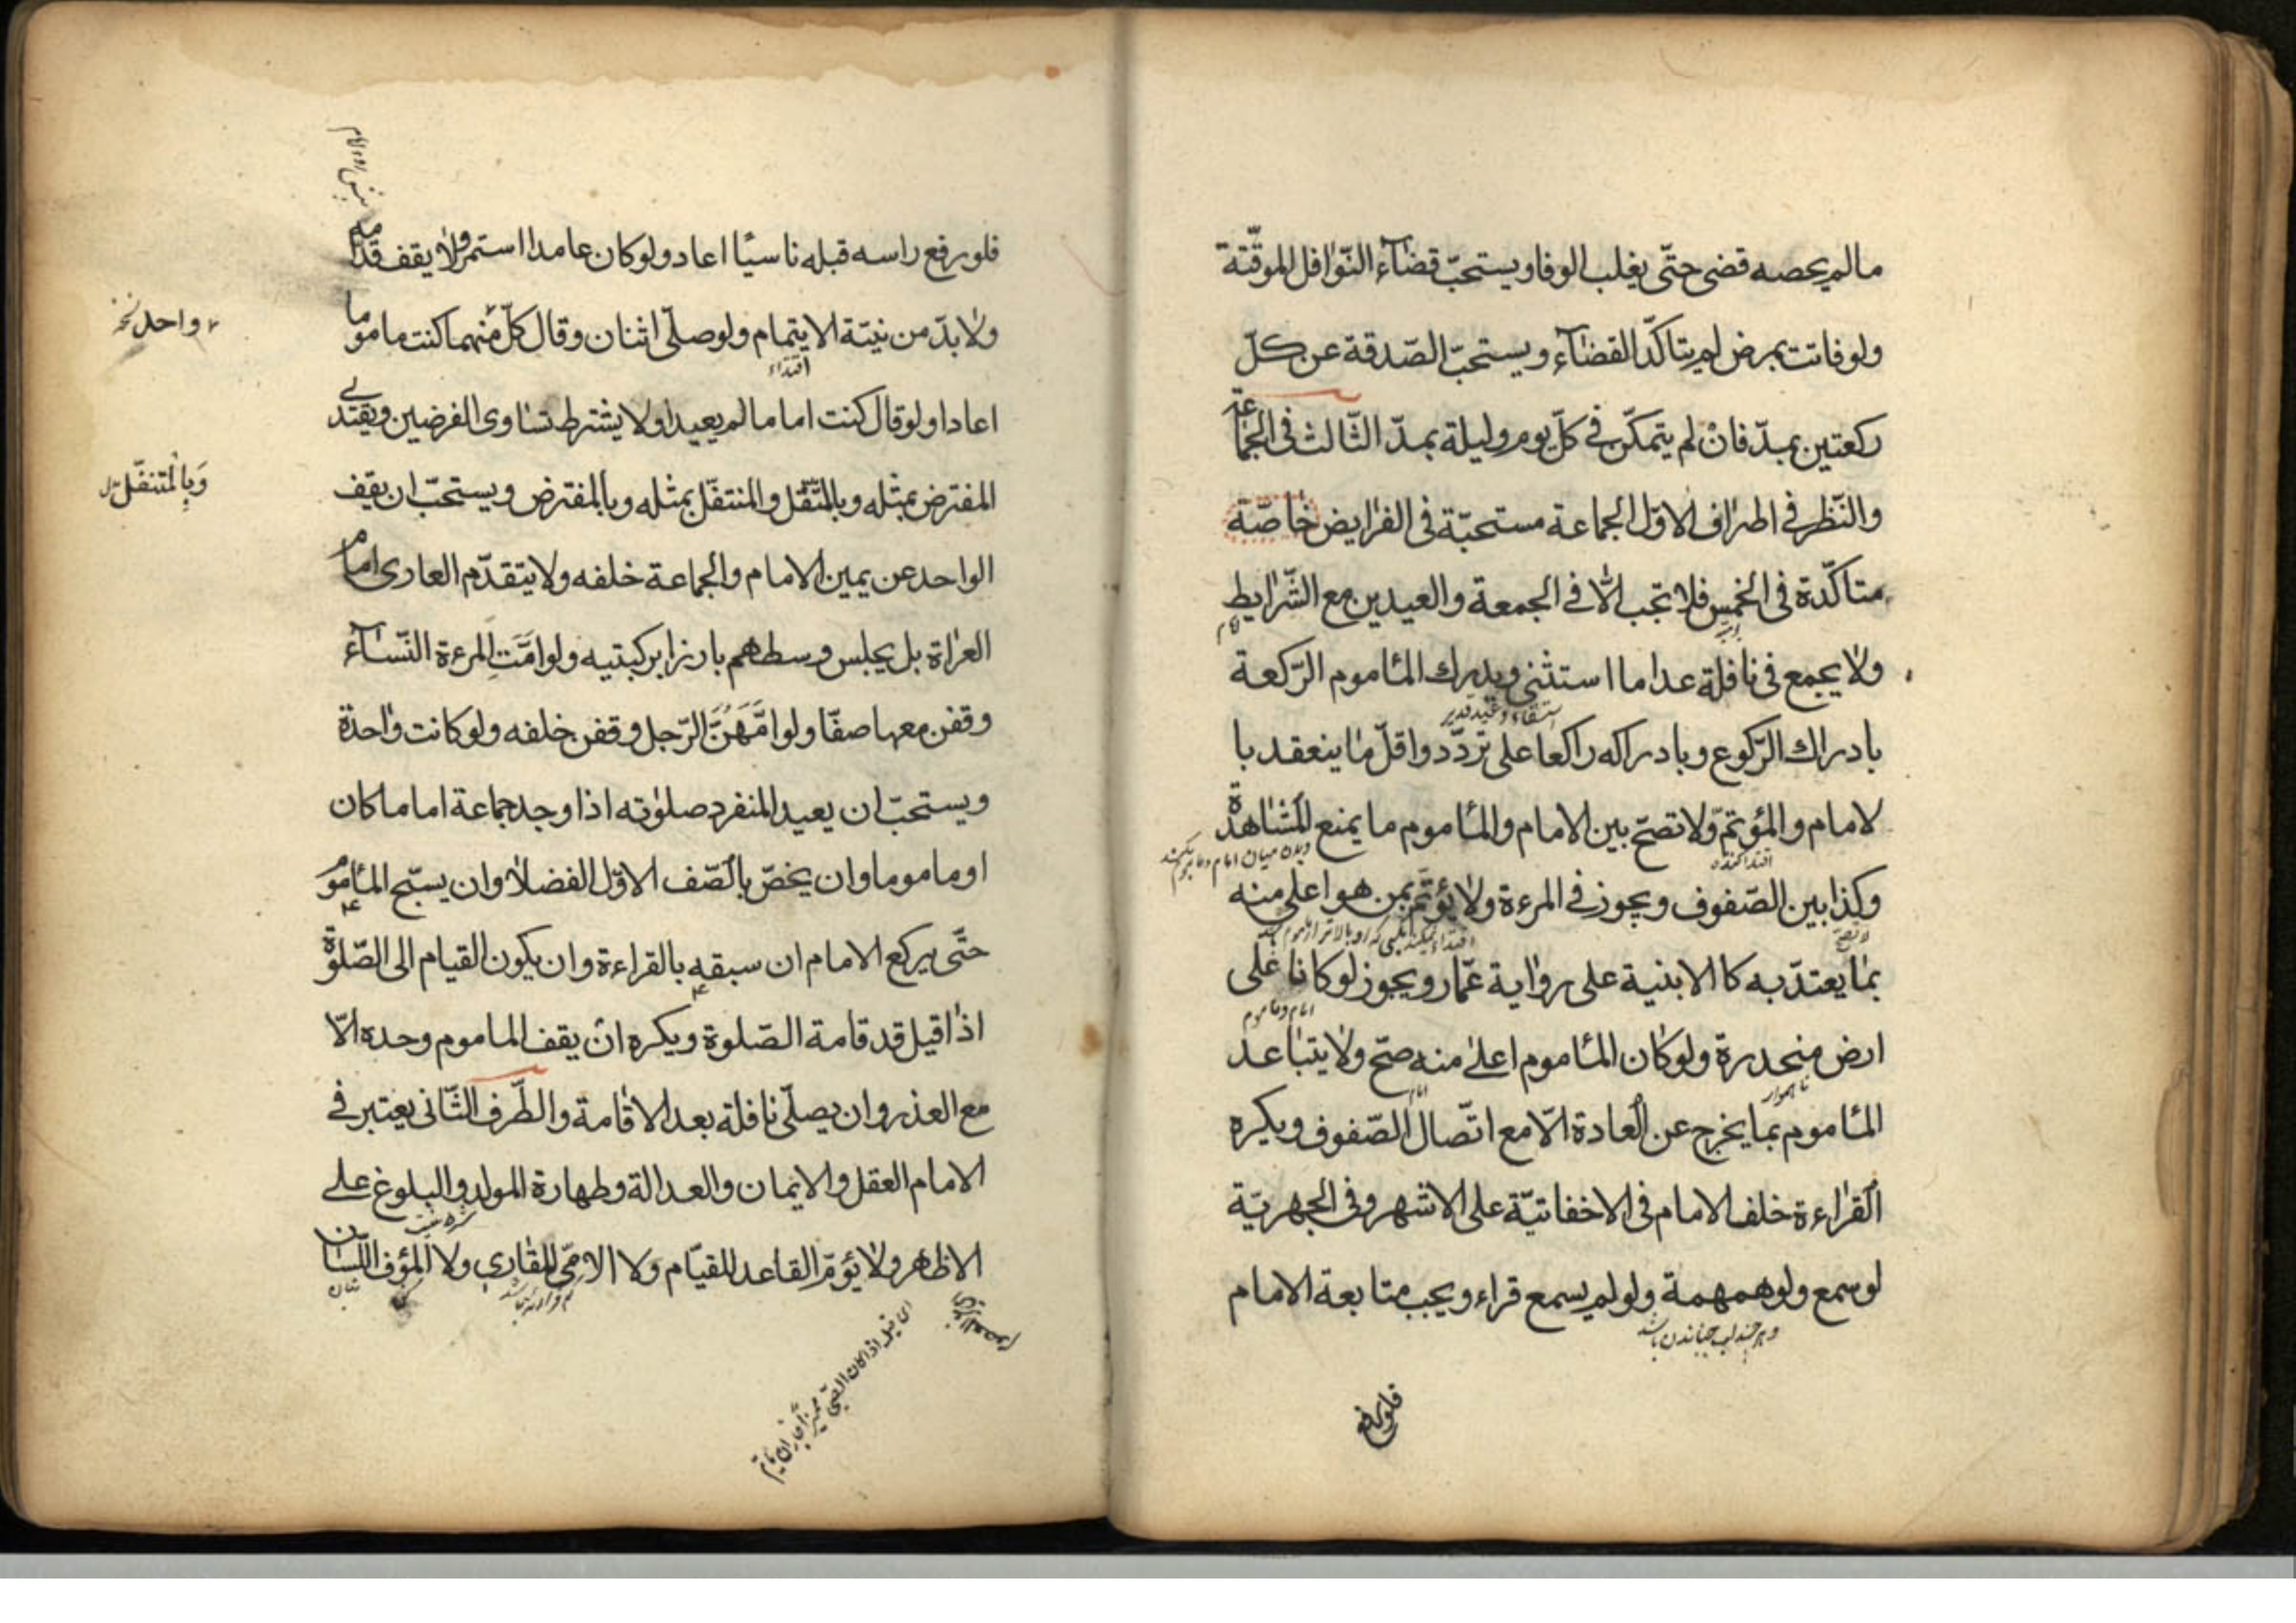 مالم يحصه قضى حتّى يغلب الوفا ويستحبّ قضآء النّوافل الموقّتة
ولو فاتت بمرض لم يتاكّد القضآء ويستحبّ الصّدقة عن كلّ
ركعتين بمدّ فانْ لم يتمكّن فى كلّ يوم وليلة بمدّ الثّالث فى الجماعة
والنّظر فى اطراف الاوّل الجماعة مستحبّة فى الفرايض خاصّة
متاكّدة فى الخمس فلا تجب الّا فى الجمعة والعيدين مع الشّرايط
ولا يجمع فى نافلة عدا ما استثنى ويدرك المأموم الرّكعة
استسقاء وعيد غدير
بادراك الرّكوع وبادراكه راكعا على تردّد واقلّ ما ينعقد با
لامام والمؤتمّ ولا تصحّ بين الامام والمأموم ما يمنع المشاهدة
اقتدا كننده
وكذا بين الصّفوف ويجوز فى المرءة ولا يؤتمّ بمن هو اعلى منه
لا تصح
بما يعتدّ به كا الابنية على رواية عمّار ويجوز لو كانا على
امام و ماموم
ارض منحدرة ولو كان المأموم اعلى منه صحّ ولا يتباعد
نا هموار
امام
المأموم بما يخرج عن العادة الّا مع اتّصال الصّفوف ويكره
القراءة خلف الامام فى الاخفاتيّة على الاشهر وفى الجهريّة
لو سمع ولو همهمة ولو لم يسمع قراء ويجب متابعة الامام
و هر چند لب جنباندن باشد
فلو رفع
فلو رفع راسه قبله ناسيًا اعاد ولو كان عامدا استمر ولا يقف قدامه
ولا بدّ من نيّة الايتمام ولو صلّى اثنان وقال كلّ منهما كنت ماموما
واحد نخ
اقتداء
اعادا ولو قال كنت اماما لم يعيدا ولا يشترط تساوى الفرضين ويقتدى
المفترض بمثله وبالمتنفّل والمتنفّل بمثله وبالمفترض ويستحبّ ان يقف
وَبِالْمتنفّل
الواحد عن يمين الامام والجماعة خلفه ولا يتقدّم العارى امام
العراة بل يجلس وسطهم بارزا بركبتيه ولو امَّتِ المرءة النّسآء
وقفن معها صفّا ولو امَّهُنَّ الرّجل وقفن خلفه ولو كانت واحدة
ويستحبّ ان يعيد المنفرد صلوته اذا وجد جماعة اماما كان
او ماموما وان يخصّ بالصّف الاوّل الفضلا وان يسبّح المأموم
حتّى يركع الامام ان سبقه بالقراءة وان يكون القيام الى الصّلوة
اذا قيل قد قامة الصّلوة ويكره انْ يقف الماموم وحده الّا
مع العذر وان يصلّى نافلة بعد الاقامة والطّرف الثّانى يعتبر فى
الامام العقل والايمان والعدالة وطهارة المولد والبلوغ على
الاظهر ولا يؤمّ القاعد القيّام ولا الامّى القارى ولا المؤف اللّسان